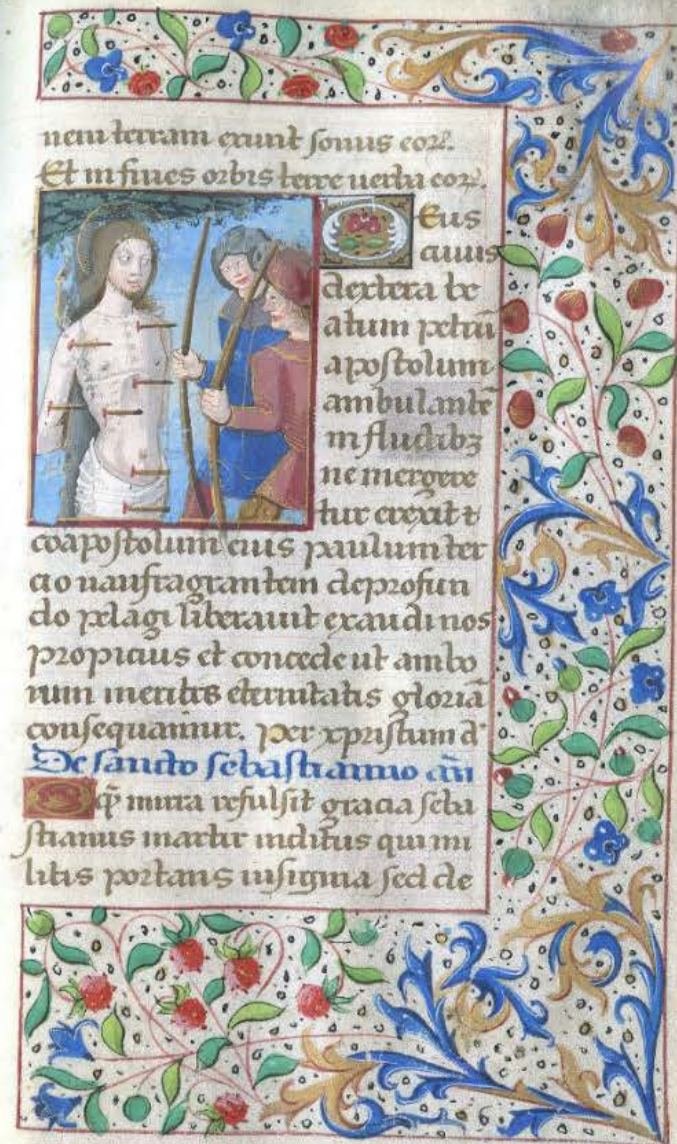 nem terram exiuit sonus coꝝ.
Et in fines orbis terre uerba coꝝ.
Deus
cuius
dextera be
atum petrū
apostolum
ambulantē
in fluctibꝫ
ne mergere
tur erexit ⁊
coapostolum eius paulum ter
cio naufragrantem de profun
do pelagi liberauit exaudi nos
propicius et concede ut ambo
rum meritis eternitatis gloriā
consequamur. per xpristum d
De sancto sebastianuo an
O ꝙ mira refulsit gracia seba
stianus martir inclitus qui mi
litis portans insignia sed de